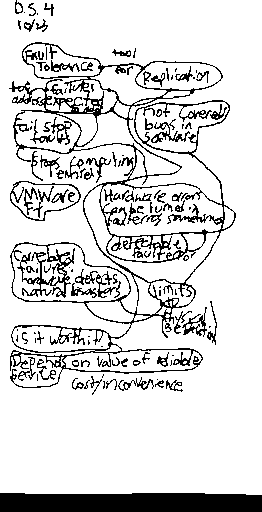 D.S. 4
10/23
Fault
Tolerance
tool
for
Replication
failures
expected
not covered:
bugs in
software
Fail stop
faults
Stops computing
entirely
VMWare
FT
Hardware errors
can be turned in
sometimes
detectable
fault error
Correlated
failures:
hardware defects
natural disasters
limits
to
physical
is it worth it
Depends on value of reliable
service
cost/inconvenience